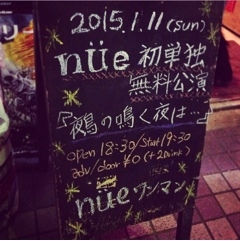 2015.1.11(sun)
nüe 初単独
無料公演
『鵺の鳴く夜は…』
open 18:30/start 19:30
adv/door ¥0 (+2Drink)
nüe ワンマン